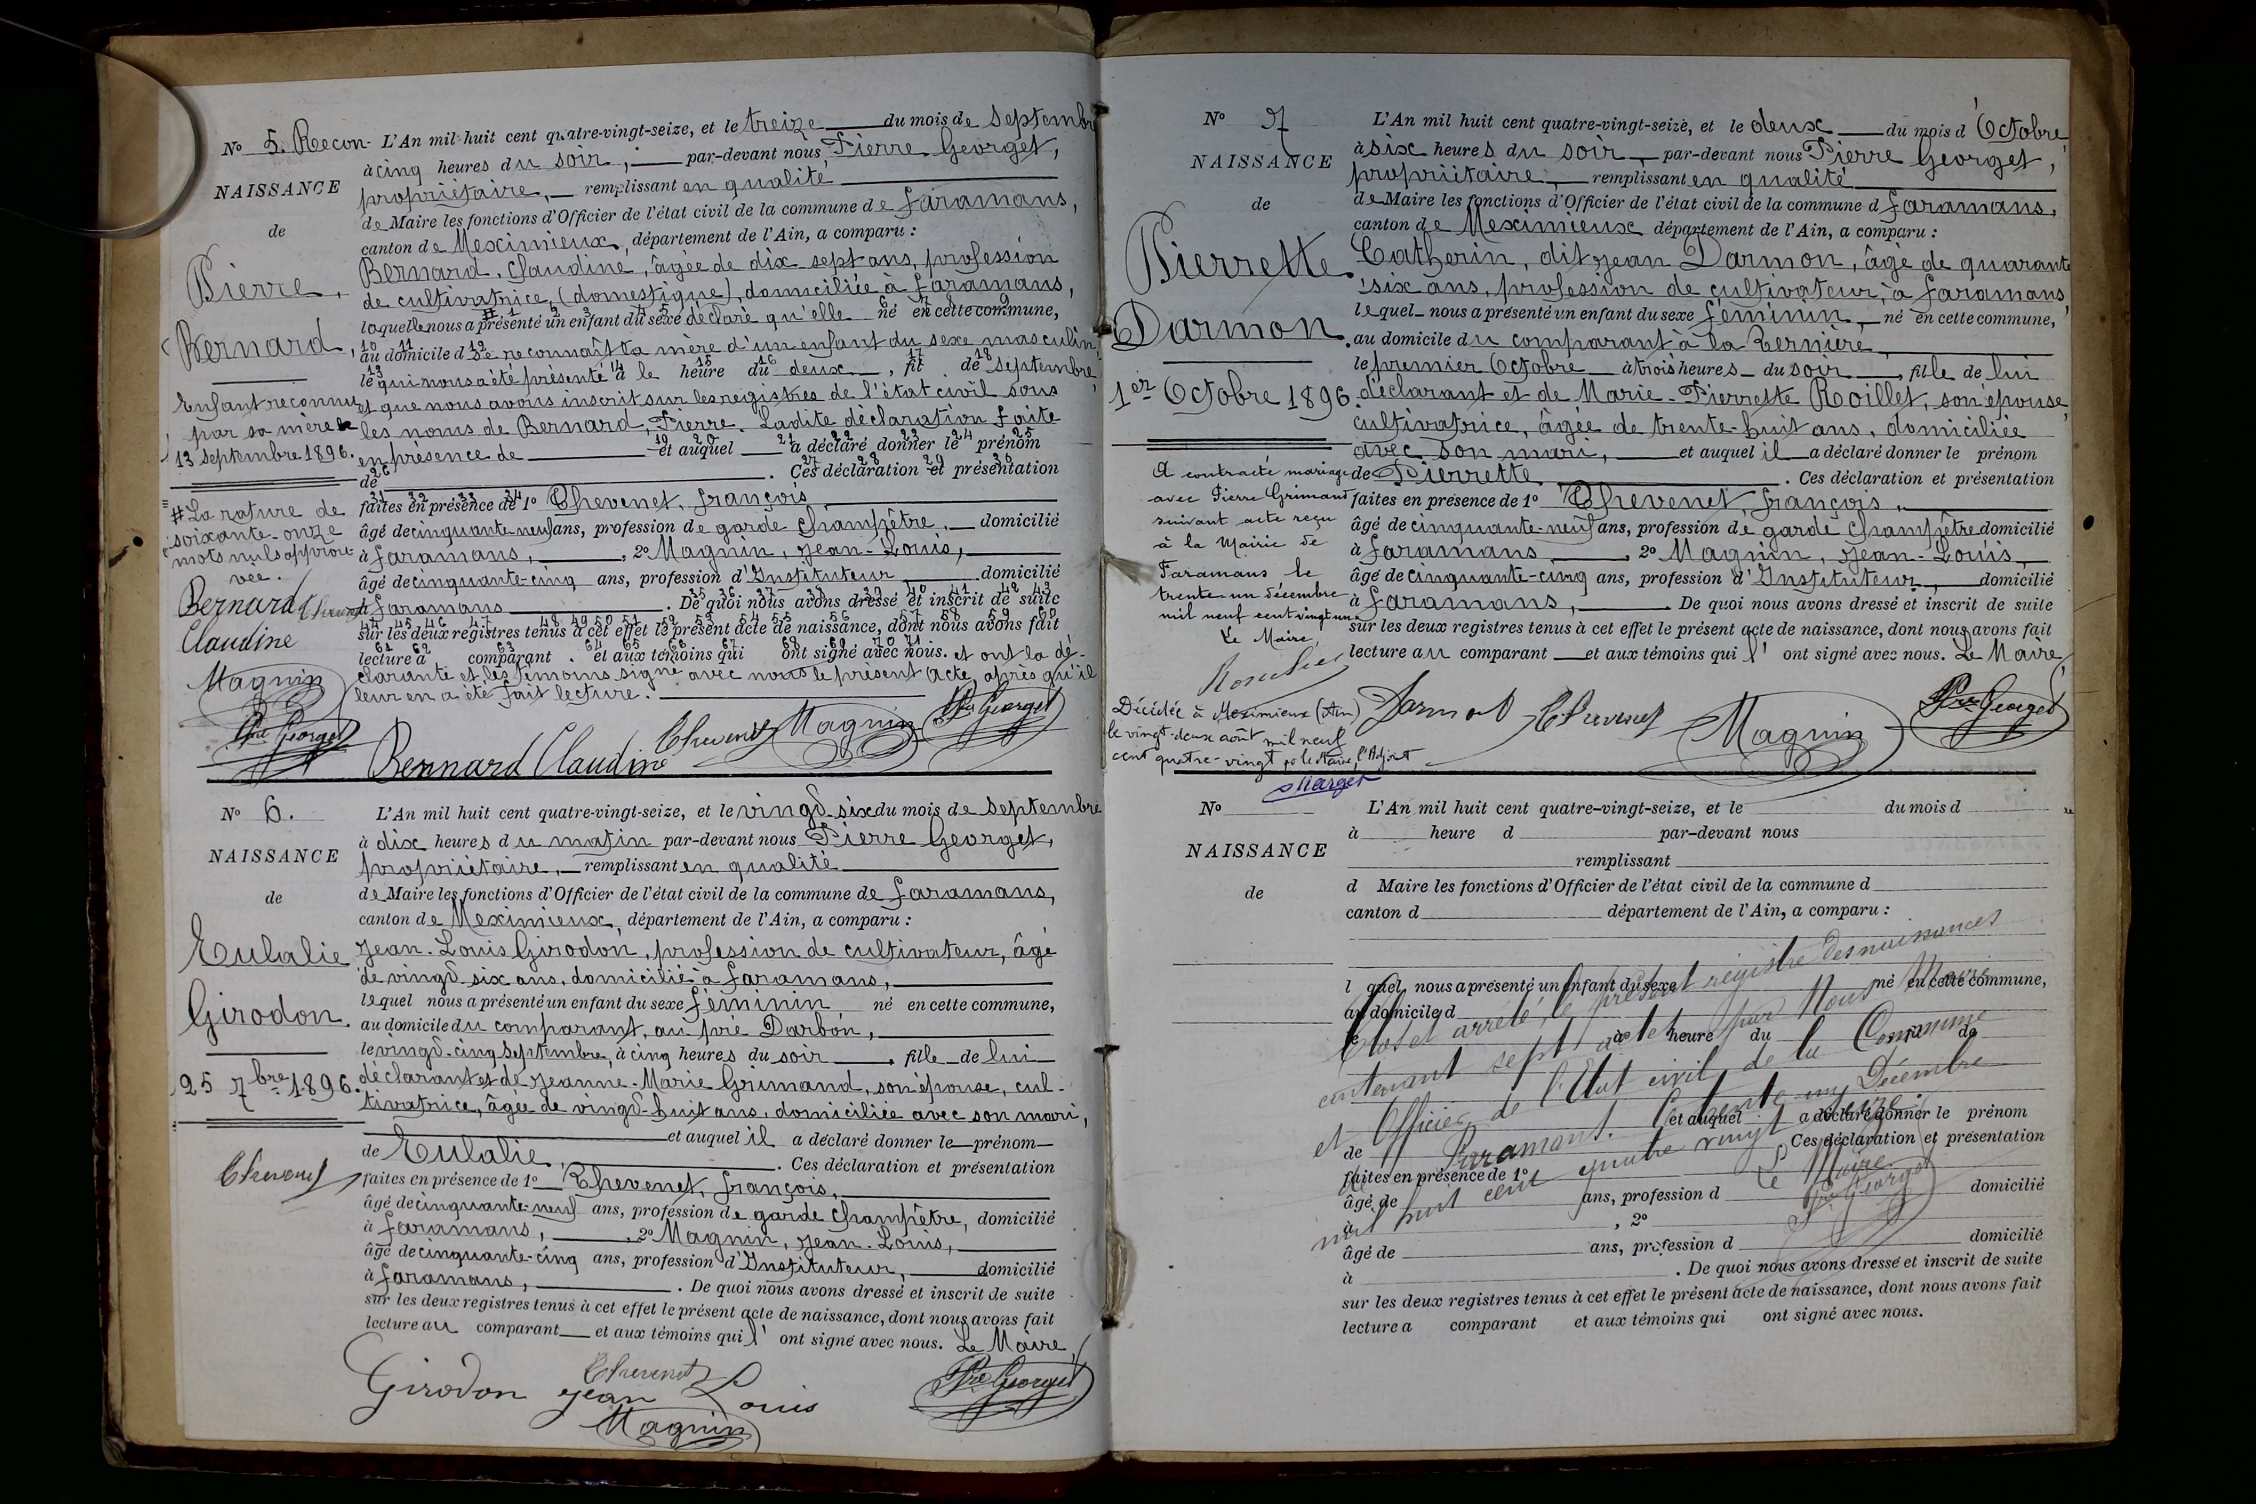 No 5. Recon- L'An mil huit cent quatre-vingt-seize, et le treize du mois de Septembre
à cinq heures du soir, par-devant nous, Pierre Georget,
NAISSANCE
propriétaire, remplissant en qualité
de Maire les fonctions d'Officier de l'état civil de la commune de Faramans,
de
canton de Meximieux, département de l'Ain, a comparu :
Pierre,
Bernard, Claudine, âgée de dix sept ans, profession
de cultivatrice, (domestique), domiciliée à Faramans,
laquelle nous a présenté un enfant du sexe déclaré qu'elle né en cette commune,
Bernard,
au domicile d se reconnaît la mère d'un enfant du sexe masculin
le qui nous a été présenté à le heure du deux, fil de Septembre,
Enfant reconnu
par sa mère le
13 septembre 1896.
et que nous avons inscrit sur les registres de l'état civil sous
les noms de Bernard, Pierre. Ladite déclaration faite
en présence de et auquel a déclaré donner le prénom
de . Ces déclaration et présentation
# La rature de
soixante-onze
mots nuls approu-
vée.
Bernard
Claudine
Chevenet
Magnin
Pre Georget
faites en présence de 1o Chevenet, François,
âgé de cinquante-neuf ans, profession de garde champêtre, domicilié
à Faramans, , 2o Magnin, Jean-Louis,
âgé de cinquante-cinq ans, profession d'Instituteur domicilié
à Faramans . De quoi nous avons dressé et inscrit de suite
sur les deux registres tenus à cet effet le présent acte de naissance, dont nous avons fait
lecture a comparant . et aux témoins qui ont signé avec nous. et ont la dé-
clarante et les témoins signé avec nous le présent acte, après qu'il
leur en a été fait lecture.
Bernard Claudine Chevenet Magnin Pre Georget
No 6. L'An mil huit cent quatre-vingt-seize, et le vingt-six du mois de Septembre
à dix heures du matin par-devant nous Pierre Georget,
NAISSANCE
propriétaire, remplissant en qualité
de Maire les fonctions d'Officier de l'état civil de la commune de Faramans,
de
canton de Meximieux, département de l'Ain, a comparu :
Eulalie
Jean-Louis Girodon, profession de cultivateur, âgé
de vingt-six ans, domicilié à Faramans,
lequel nous a présenté un enfant du sexe féminin né en cette commune,
Girodon.
au domicile du comparant, au pré Darbon,
le vingt-cinq Septembre, à cinq heures du soir , fille de lui
25 7bre 1896.
déclarant et de Jeanne-Marie Grimand, son épouse, cul-
tivatrice, âgée de vingt-huit ans, domiciliée avec son mari,
et auquel il a déclaré donner le prénom
de Eulalie, . Ces déclaration et présentation
Chevenet
faites en présence de 1o Chevenet, François,
âgé de cinquante-neuf ans, profession de garde champêtre, domicilié
à Faramans, , 2o Magnin, Jean-Louis,
âgé de cinquante-cinq ans, profession d'Instituteur, domicilié
à Faramans, . De quoi nous avons dressé et inscrit de suite
sur les deux registres tenus à cet effet le présent acte de naissance, dont nous avons fait
lecture au comparant et aux témoins qui l' ont signé avec nous. Le Maire,
Girodon Jean Louis Chevenet Magnin Pre Georget
No 7 L'An mil huit cent quatre-vingt-seize, et le deux du mois d'Octobre,
à six heures du soir, par-devant nous Pierre Georget,
NAISSANCE
propriétaire, remplissant en qualité
de
de Maire les fonctions d'Officier de l'état civil de la commune d Faramans,
canton de Meximieux département de l'Ain, a comparu :
Pierrette
Catherin, dit Jean Darmon, âgé de quarante
six ans, profession de cultivateur, à Faramans,
lequel nous a présenté un enfant du sexe féminin, né en cette commune,
Darmon.
au domicile du comparant à la Bernière,
le premier Octobre à trois heures du soir , fille de lui
1er Octobre 1896.
déclarant et de Marie-Pierrette Roillet, son épouse,
cultivatrice, âgée de trente-huit ans, domiciliée
avec son mari, et auquel il a déclaré donner le prénom
de Pierrette . Ces déclaration et présentation
A contracté mariage
avec Pierre Grimand
suivant acte reçu
à la Mairie de
Faramans le
trente-un décembre
mil neuf cent vingt-un
Le Maire
Décédée à Meximieux (Ain)
le vingt-deux août mil neuf
cent quatre-vingt po le Maire, l'Adjoint
faites en présence de 1o Chevenet, François,
âgé de cinquante-neuf ans, profession de garde champêtre domicilié
à Faramans , 2o Magnin, Jean-Louis,
âgé de cinquante-cinq ans, profession d'Instituteur, domicilié
à Faramans, . De quoi nous avons dressé et inscrit de suite
sur les deux registres tenus à cet effet le présent acte de naissance, dont nous avons fait
lecture au comparant et aux témoins qui l' ont signé avec nous. Le Maire,
Darmon Chevenet Magnin Pre Georget
No L'An mil huit cent quatre-vingt-seize, et le du mois d
à heure d par-devant nous
NAISSANCE
remplissant
de
d Maire les fonctions d'Officier de l'état civil de la commune d
canton d département de l'Ain, a comparu :
l quel nous a présenté un enfant du sexe né en cette commune,
au domicile d
le à heure du fil de
et auquel a déclaré donner le prénom
de . Ces déclaration et présentation
faites en présence de 1o
âgé de ans, profession d domicilié
à , 2o
âgé de ans, profession d domicilié
à . De quoi nous avons dressé et inscrit de suite
sur les deux registres tenus à cet effet le présent acte de naissance, dont nous avons fait
lecture a comparant et aux témoins qui ont signé avec nous.
Clos et arrêté le présent registre des naissances
contenant sept actes par Nous Maire
et Officier de l'Etat civil de la Commune
de Faramans. Le trente-un Décembre
mil huit cent quatre vingt seize.
Le Maire
Pre Georget